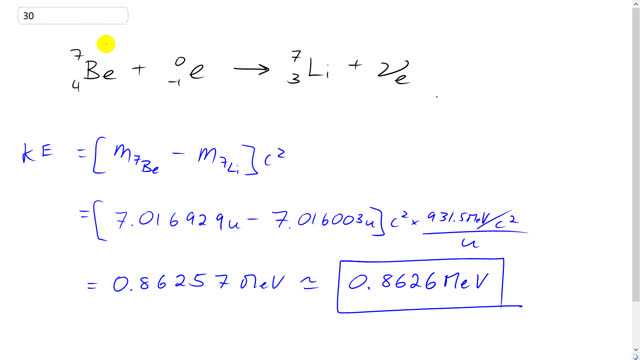 30
⁷₄Be + ⁰₋₁e → ⁷₃Li + νₑ
KE = [m₇Be − m₇Li]c²
= [7.016929u − 7.016003u]c² × (931.5MeV/c²)/u
= 0.86257 MeV ≃ 0.8626 MeV